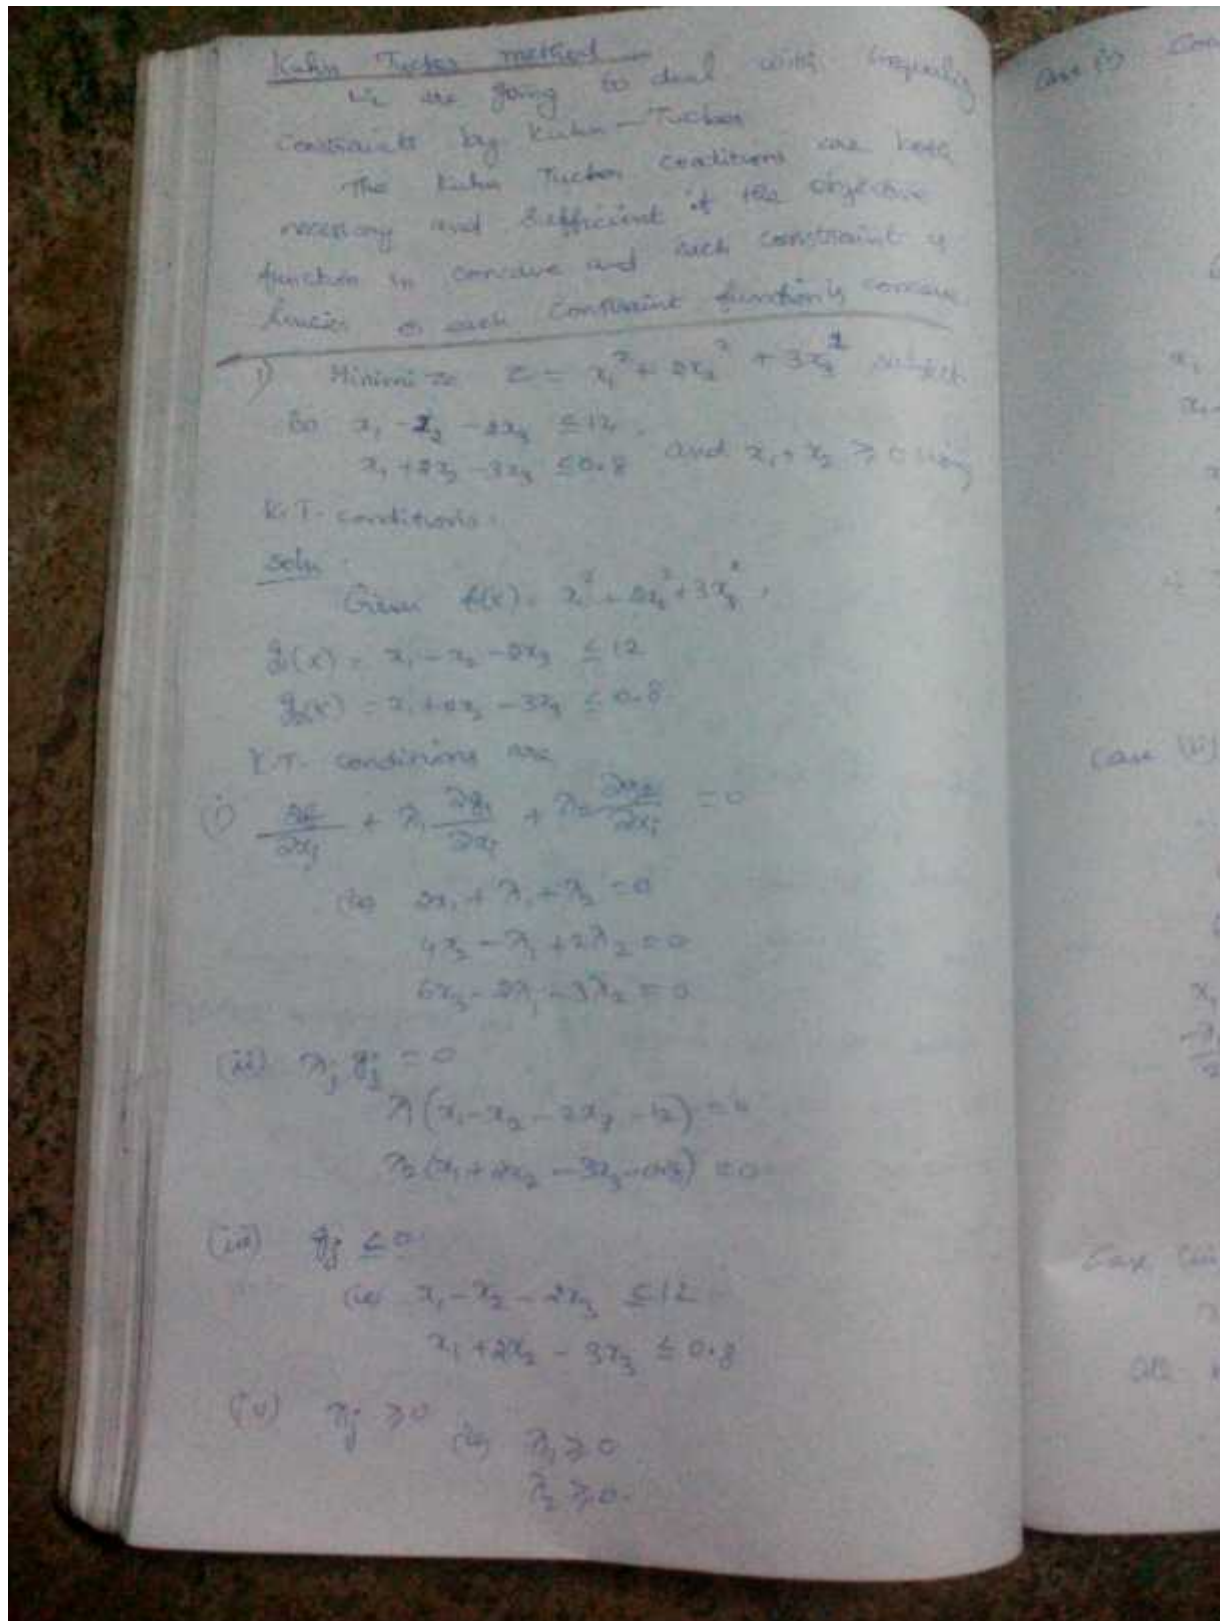 Kuhn Tucker method
We are going to deal with inequality
constraints by Kuhn-Tucker
The Kuhn Tucker conditions are both
necessary and sufficient if the objective
function in concave and each constraint is
linear or each constraint function is concave.
1) Minimize Z = x₁² + 2x₂² + 3x₃² subject
to x₁ - x₂ - 2x₃ ≤ 12
x₁ + 2x₂ - 3x₃ ≤ 0.8 and x₁, x₂ ≥ 0 using
K.T. conditions.
Soln.
Given f(x) = x₁² + 2x₂² + 3x₃²,
g₁(x) = x₁ - x₂ - 2x₃ ≤ 12
g₂(x) = x₁ + 2x₂ - 3x₃ ≤ 0.8
K.T. conditions are
(i) ∂f/∂xj + λ₁ ∂g₁/∂xj + λ₂ ∂g₂/∂xj = 0
(ie) 2x₁ + λ₁ + λ₂ = 0
4x₂ - λ₁ + 2λ₂ = 0
6x₃ - 2λ₁ - 3λ₂ = 0
(ii) λj gj = 0
λ₁(x₁ - x₂ - 2x₃ - 12) = 0
λ₂(x₁ + 2x₂ - 3x₃ - 0.8) = 0
(iii) gj ≤ 0
(ie) x₁ - x₂ - 2x₃ ≤ 12
x₁ + 2x₂ - 3x₃ ≤ 0.8
(iv) λj ≥ 0 (ie) λ₁ ≥ 0
λ₂ ≥ 0.
Case (i)
Case (ii)
Case